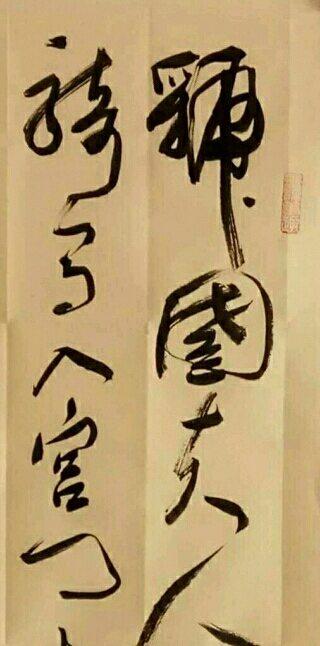 虢國夫人
騎馬入宮門